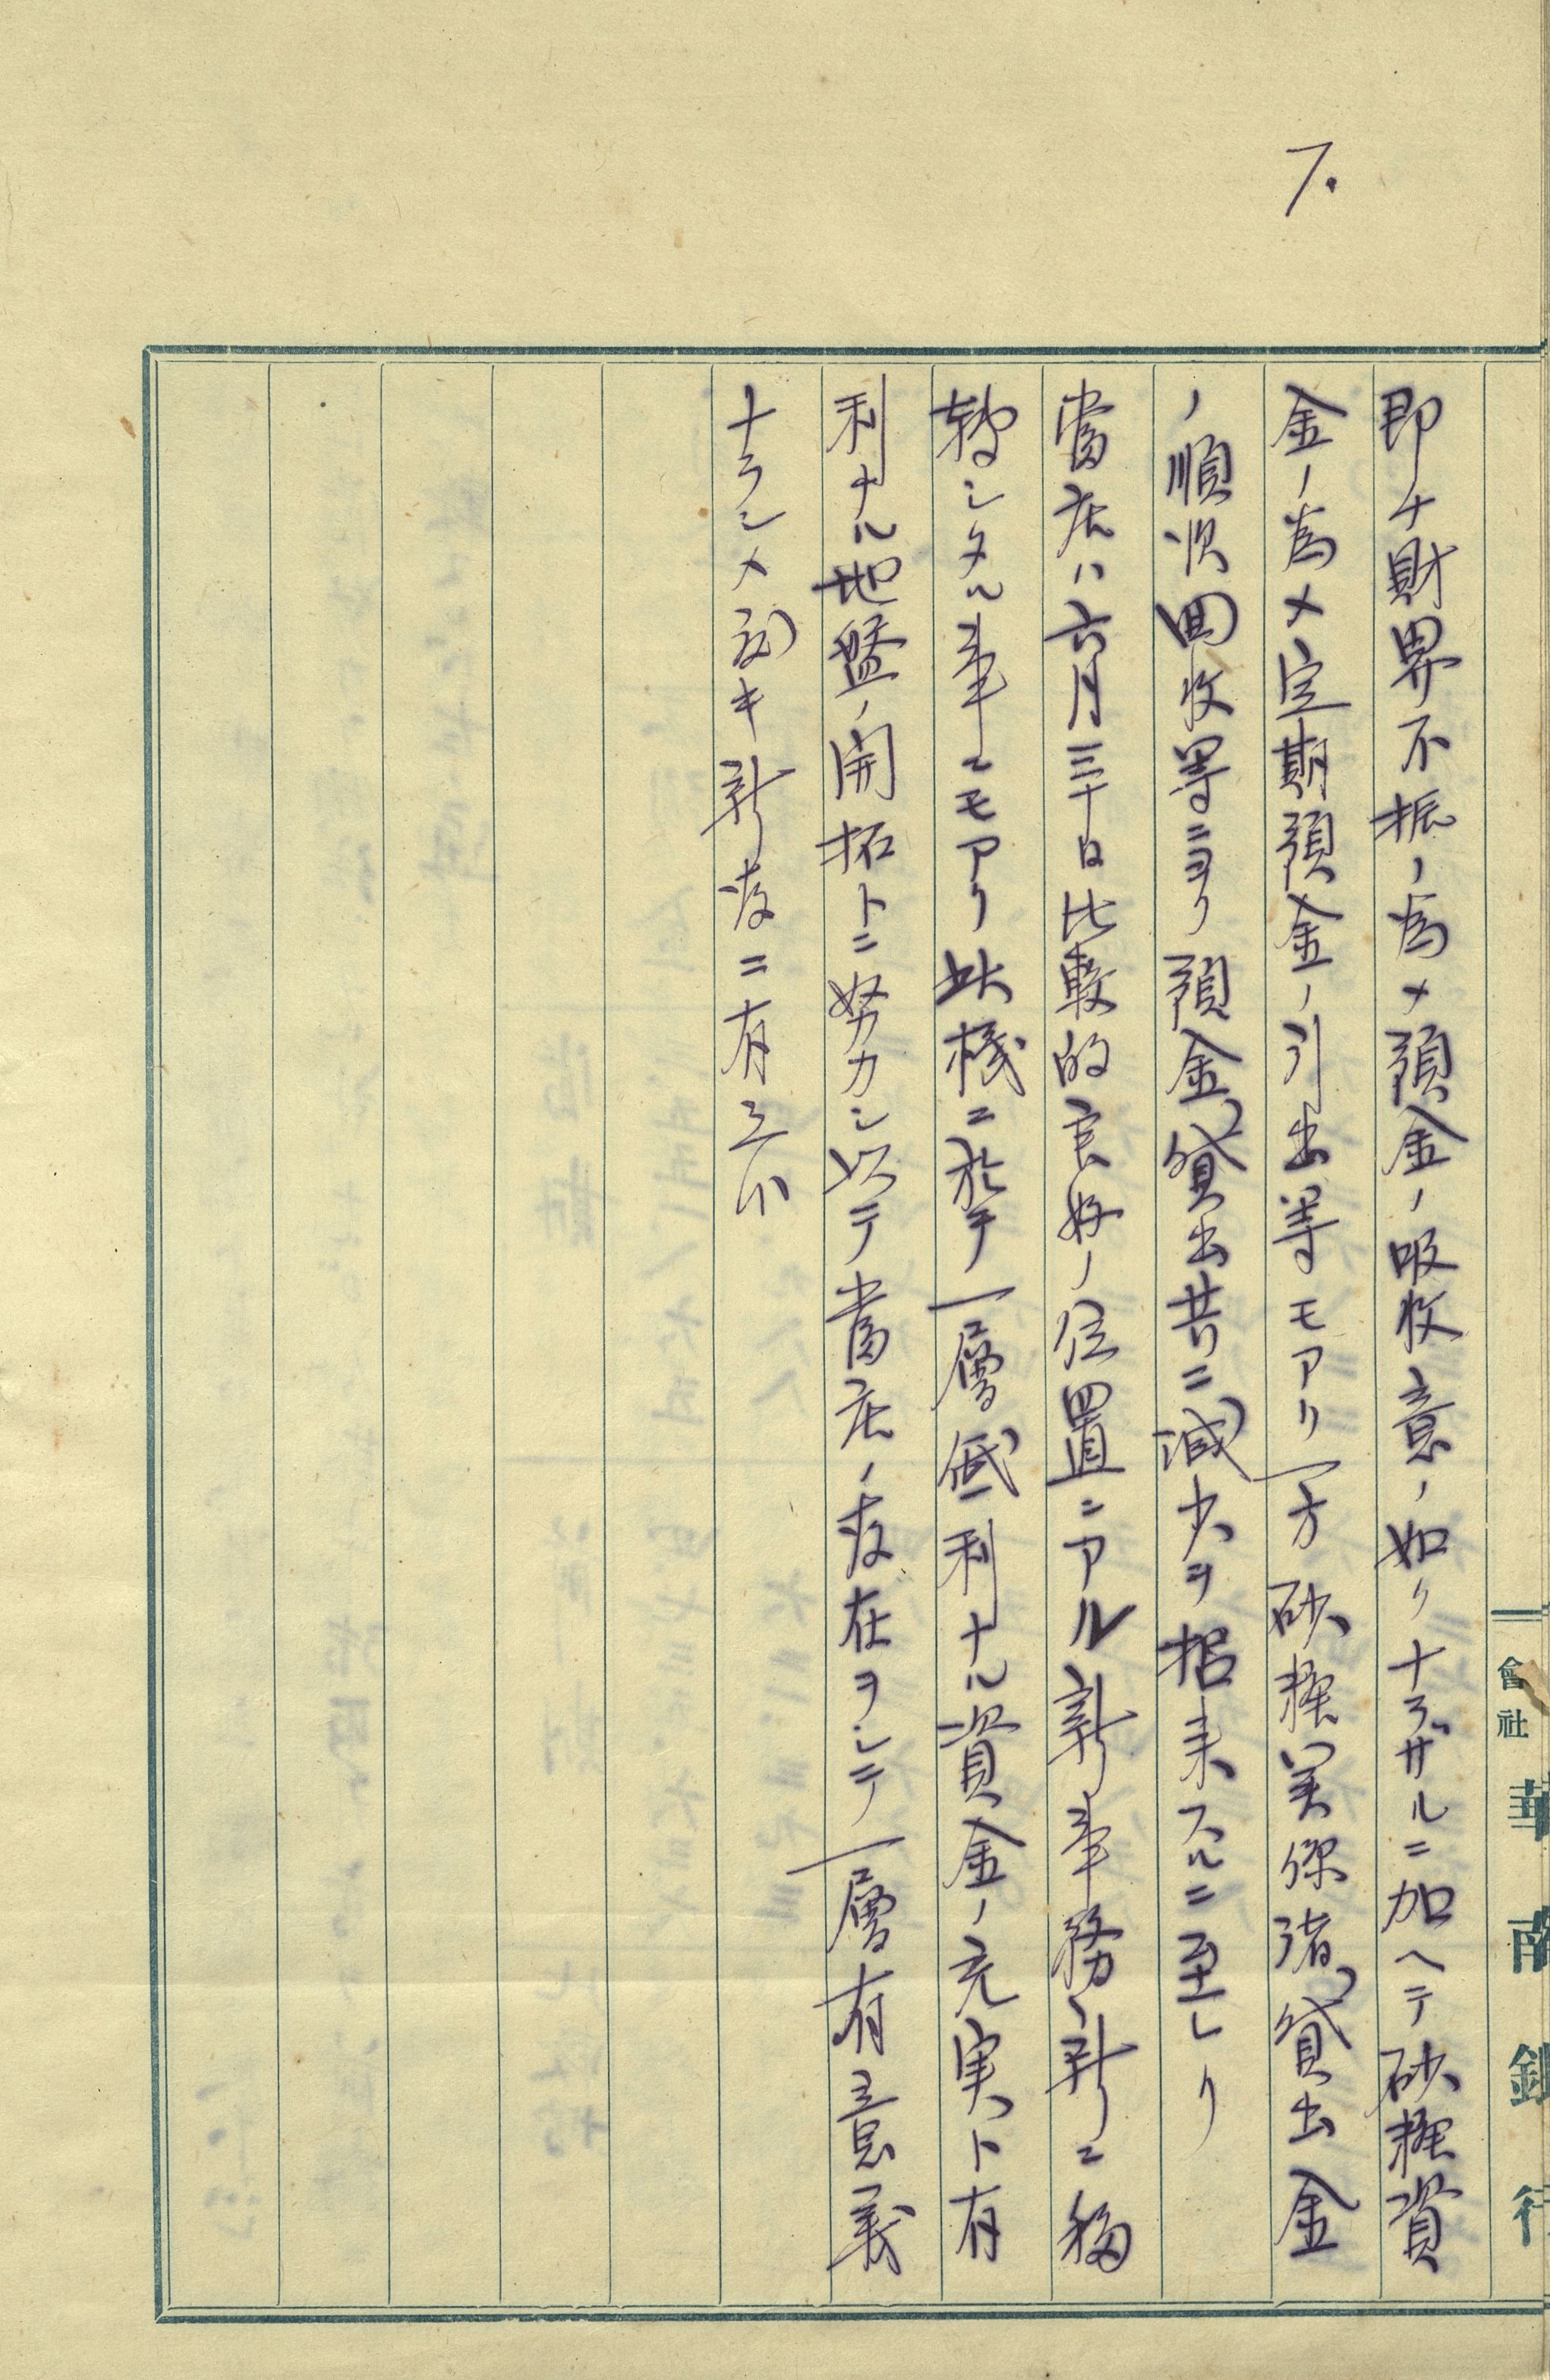 7.
即チ財界不振ノ為メ預金ノ吸收意ノ如クナラザルニ加ヘテ砂糖資
金ノ為メ定期預金ノ引出等モアリ一方砂糖関係諸貸出金
ノ順次回收等ニヨリ預金貸出共ニ減少ヲ招来スルニ至レリ
當店ハ六月三十日比較的良好ノ位置ニアル新事務所ニ移
轉シタル事ニモアリ此機ニ於テ一層低利ナル資金ノ充実ト有
利ナル地盤ノ開拓トニ努力シ以テ當店ノ存在ヲシテ一層有意義
ナラシメ度キ所存ニ有之候
會社 華南銀行